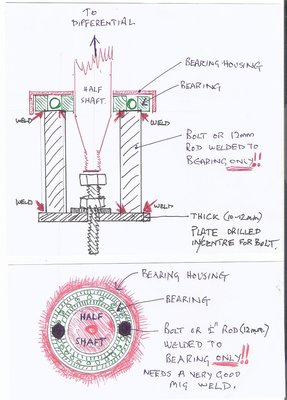 TO
DIFFERENTIAL
BEARING HOUSING
HALF
SHAFT.
BEARING
WELD
WELD
BOLT OR 12mm
ROD WELDED TO
BEARING ONLY!!
WELD
WELD
THICK (10-12mm)
PLATE DRILLED
IN CENTRE FOR BOLT.
BEARING HOUSING
BEARING
HALF
SHAFT
BOLT OR ½" ROD (12mm)
WELDED TO
BEARING ONLY!!
NEEDS A VERY GOOD
MIG WELD.